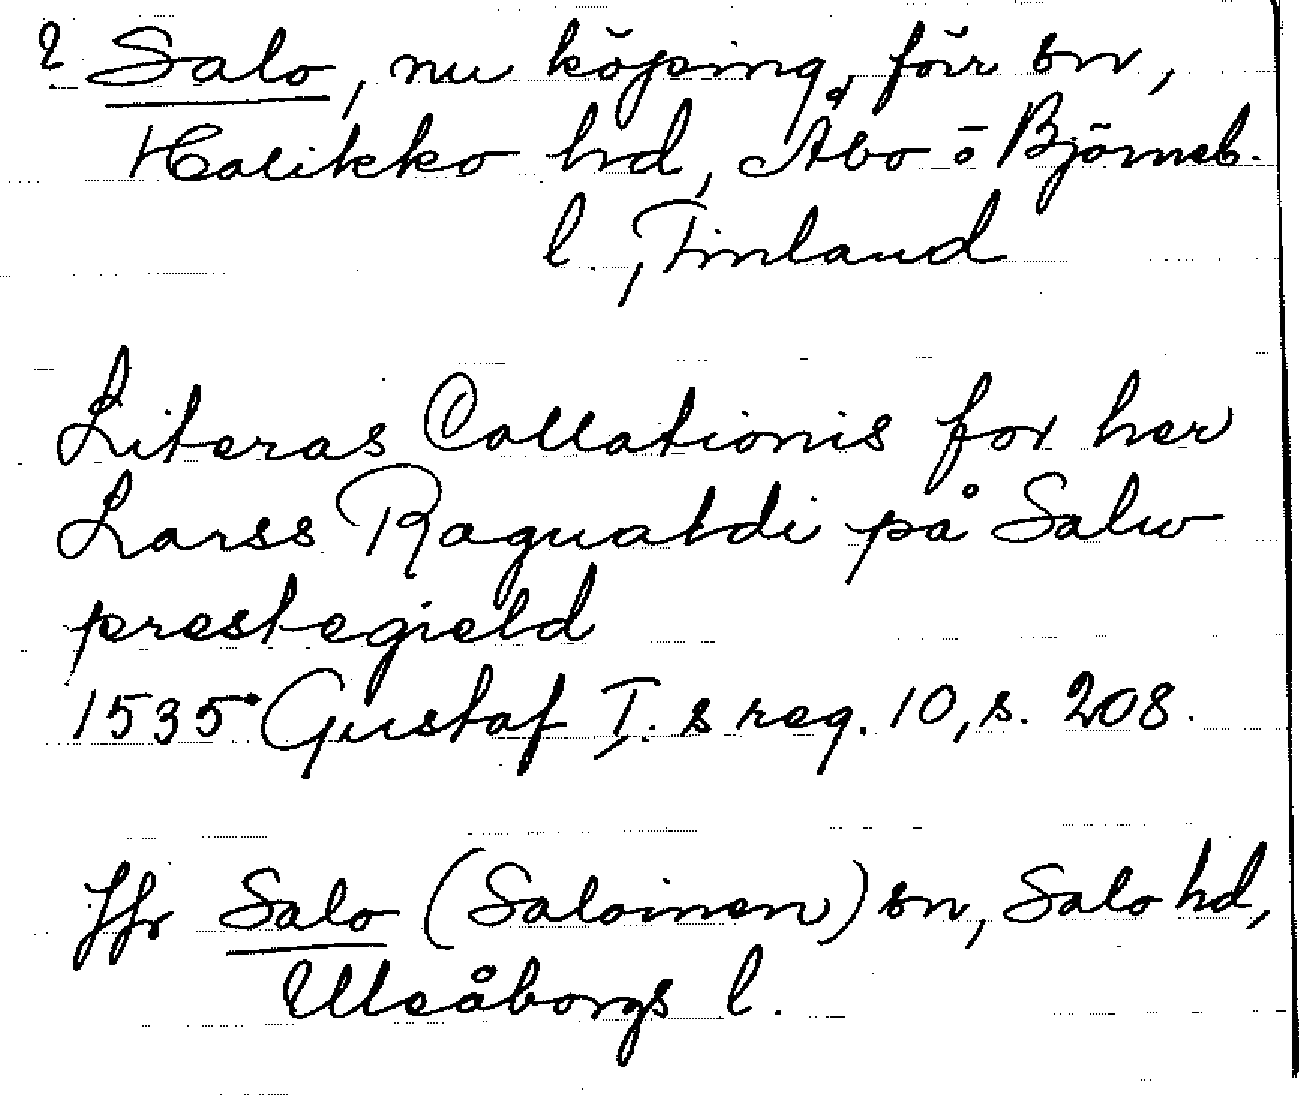 ? Salo, nu köping, förr sn,
Halikko hd, Åbo o Björneb.
l., Finland
Literas Collationis for her
Larss Ragualdi på Salw
prestegield
1535 Gustaf I:s reg. 10, s. 208.
Jfr Salo (Saloinen) sn, Salo hd,
Uleåborgs l.